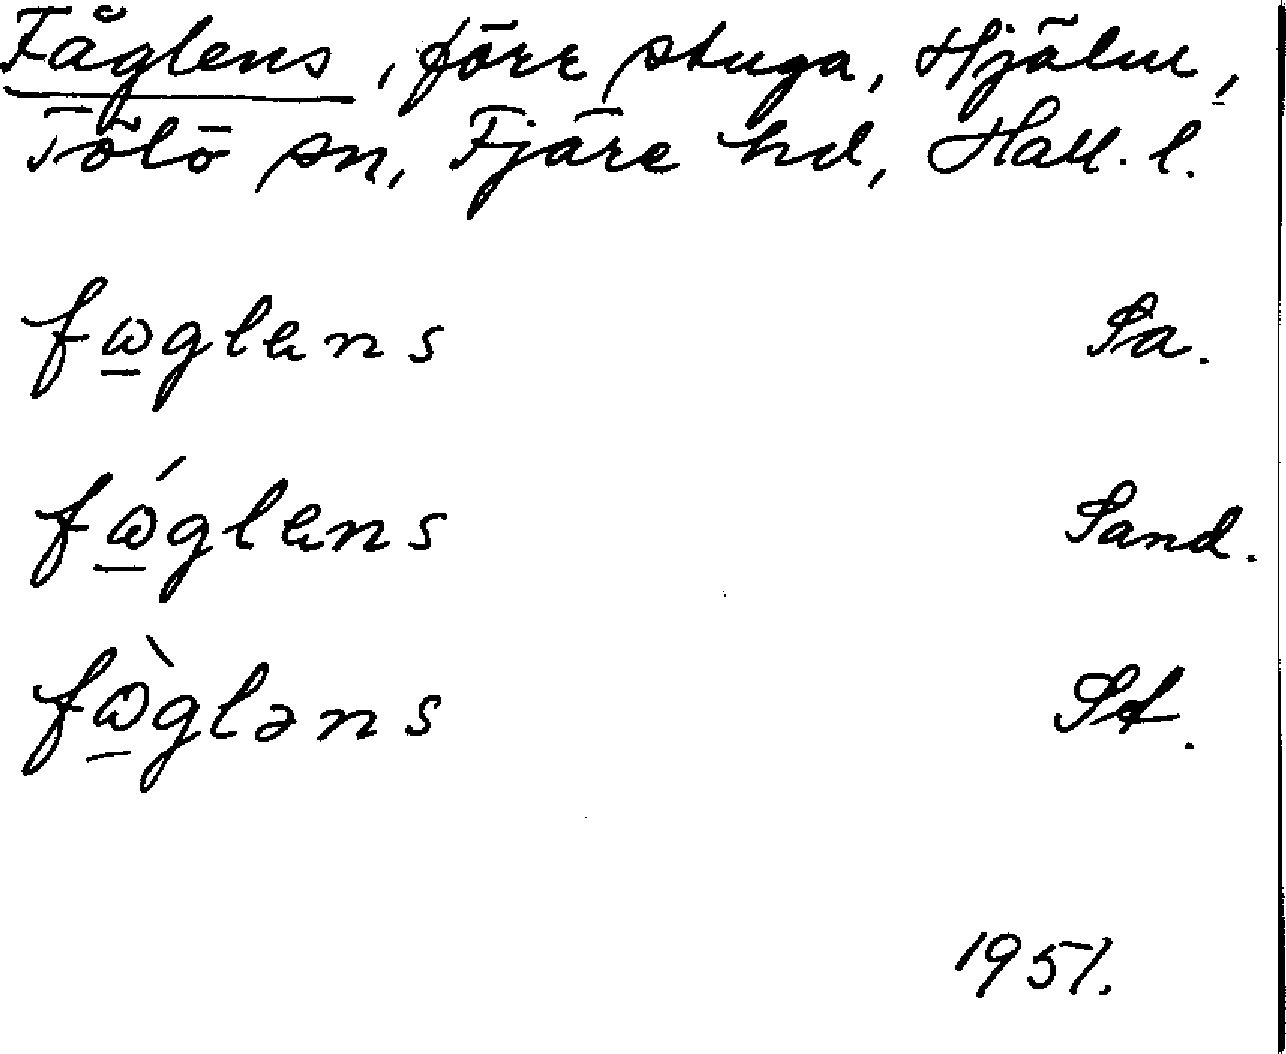 Fåglens, förr stuga, Hjälm,
Tölö sn, Fjäre hd, Hall. l.
fωglens Sa.
fώglens Sand.
fὼgləns St.
1951.